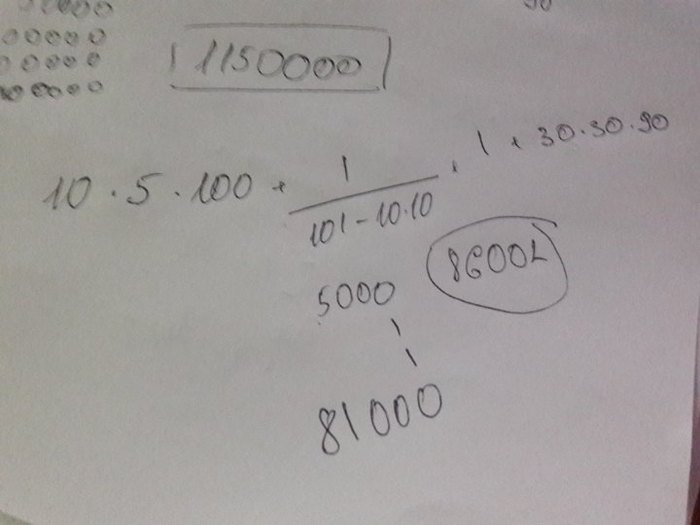 1150000
10 · 5 · 100 + 1 / (101 - 10·10) + 1 + 30·30·90
5000 86002
1
1
81000